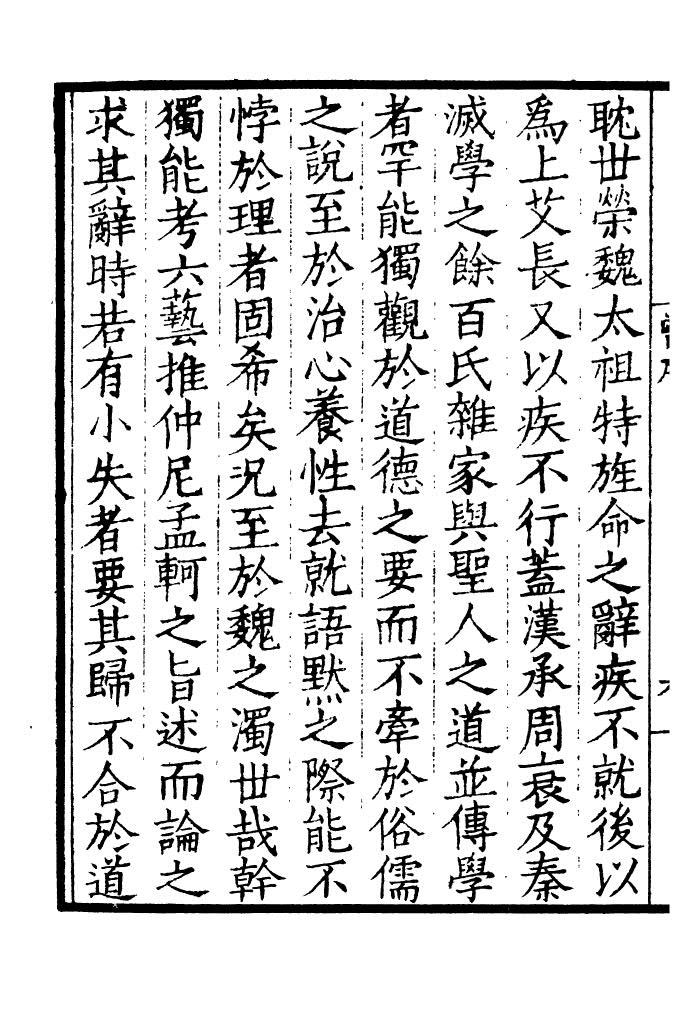 耽世榮魏太祖特旌命之辭疾不就後以
爲上艾長又以疾不行蓋漢承周衰及秦
滅學之餘百氏雜家與聖人之道並傳學
者罕能獨觀於道德之要而不牽於俗儒
之說至於治心養性去就語默之際能不
悖於理者固希矣况至於魏之濁世哉幹
獨能考六藝推仲尼孟軻之旨述而論之
求其辭時若有小失者要其歸不合於道